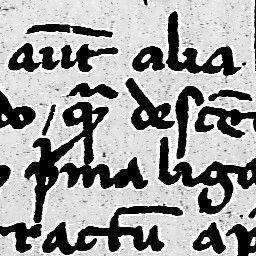 aūt alia
do qn̄ descē
pͥma liga
ractū ap